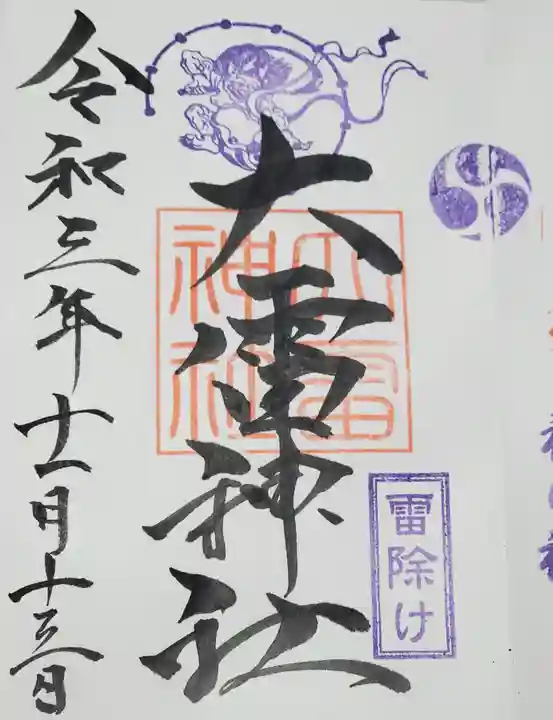 大雷神社
大雷
神社
雷除け
令和三年十一月十三日